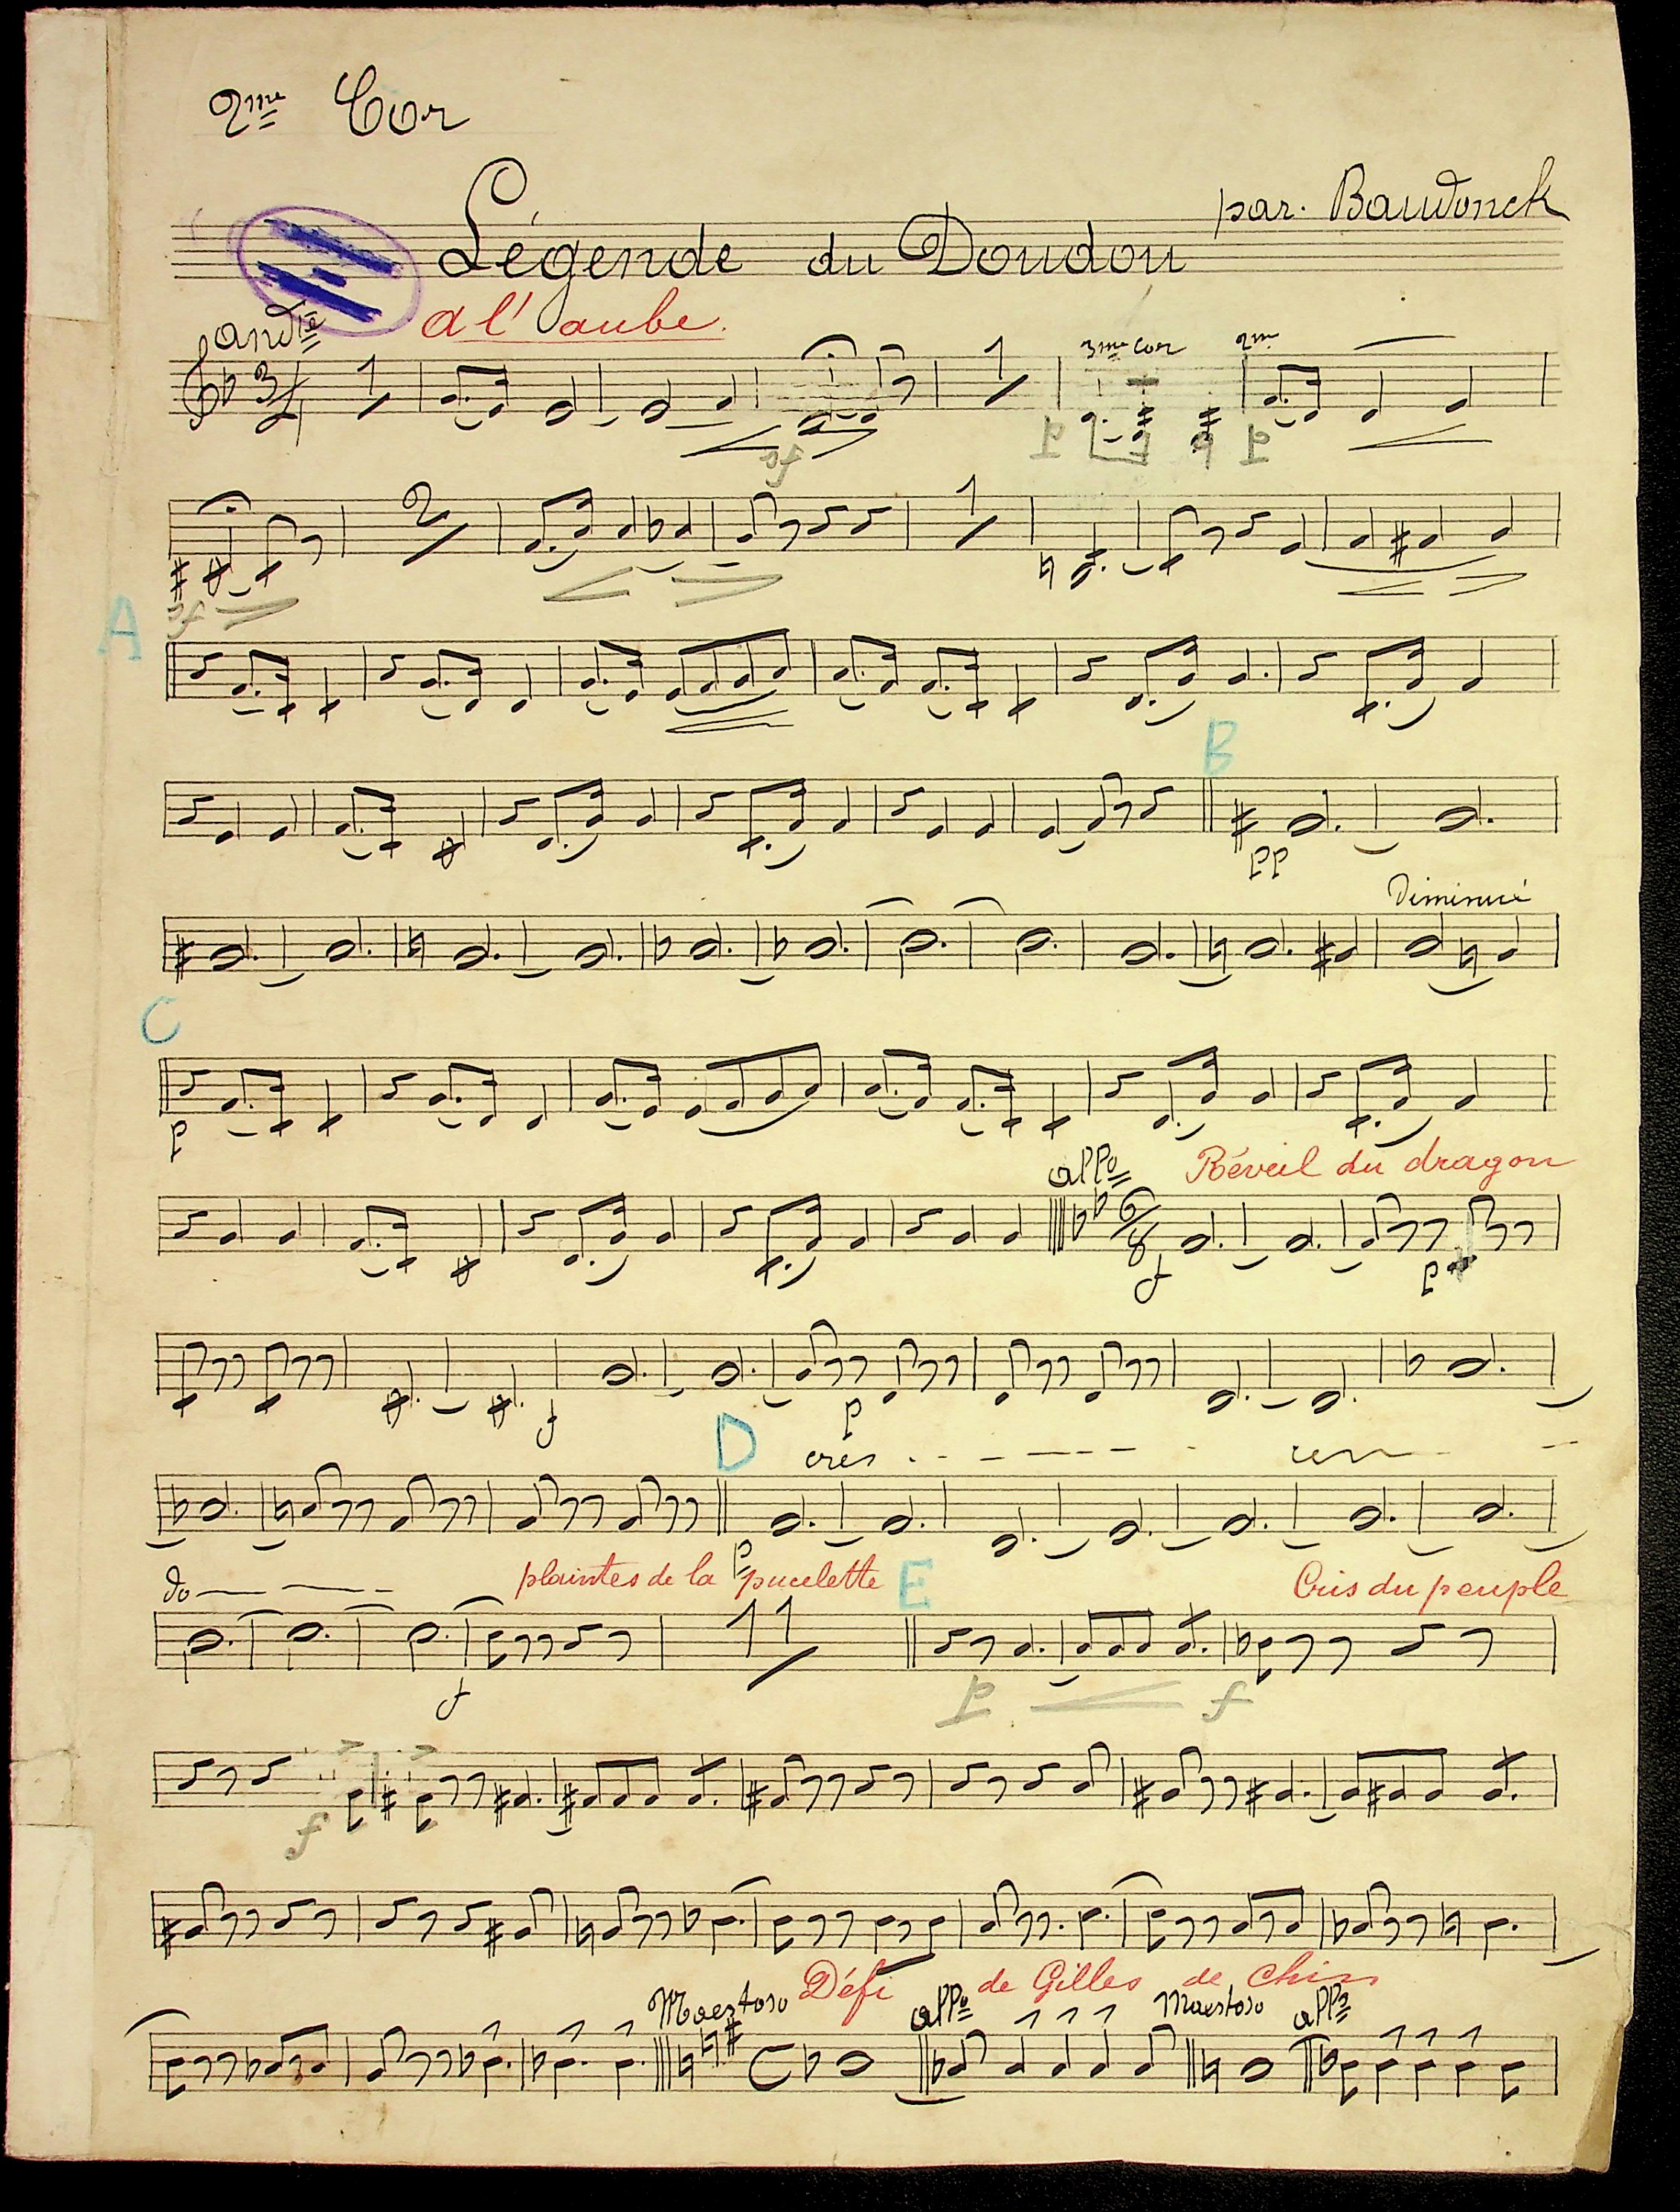 2me Cor
par. Baudonck
Légende du Doudou
andte
a l'aube.
3
1
1
3me Cor
2me
sf
p
p
2
1
sf
A
B
pp
Diminué
C
p
allo
Réveil du dragon
6/8
f
p
f
p
D
crés
cen
p
do
plaintes de la pucelette
E
Cris du peuple
11
f
p
f
f
Maestoso
Défi de Gilles de Chin
allo
Maestoso
allo
C